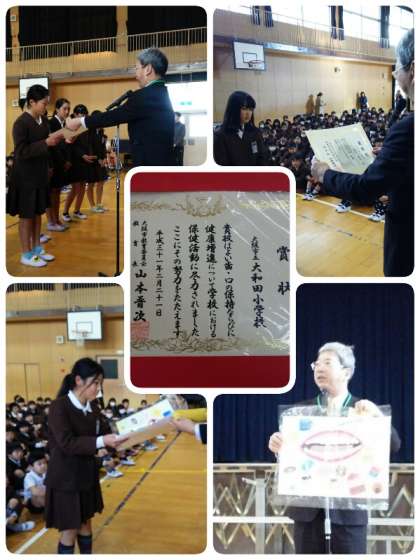 賞状
大阪市立
大和田小学校
貴校はよい歯・口の保持ならびに
健康増進について学校における
保健活動に尽力されました
ここにその努力をたたえます
平成三十一年二月二十一日
大阪市教育委員会
教育長 山本晋次